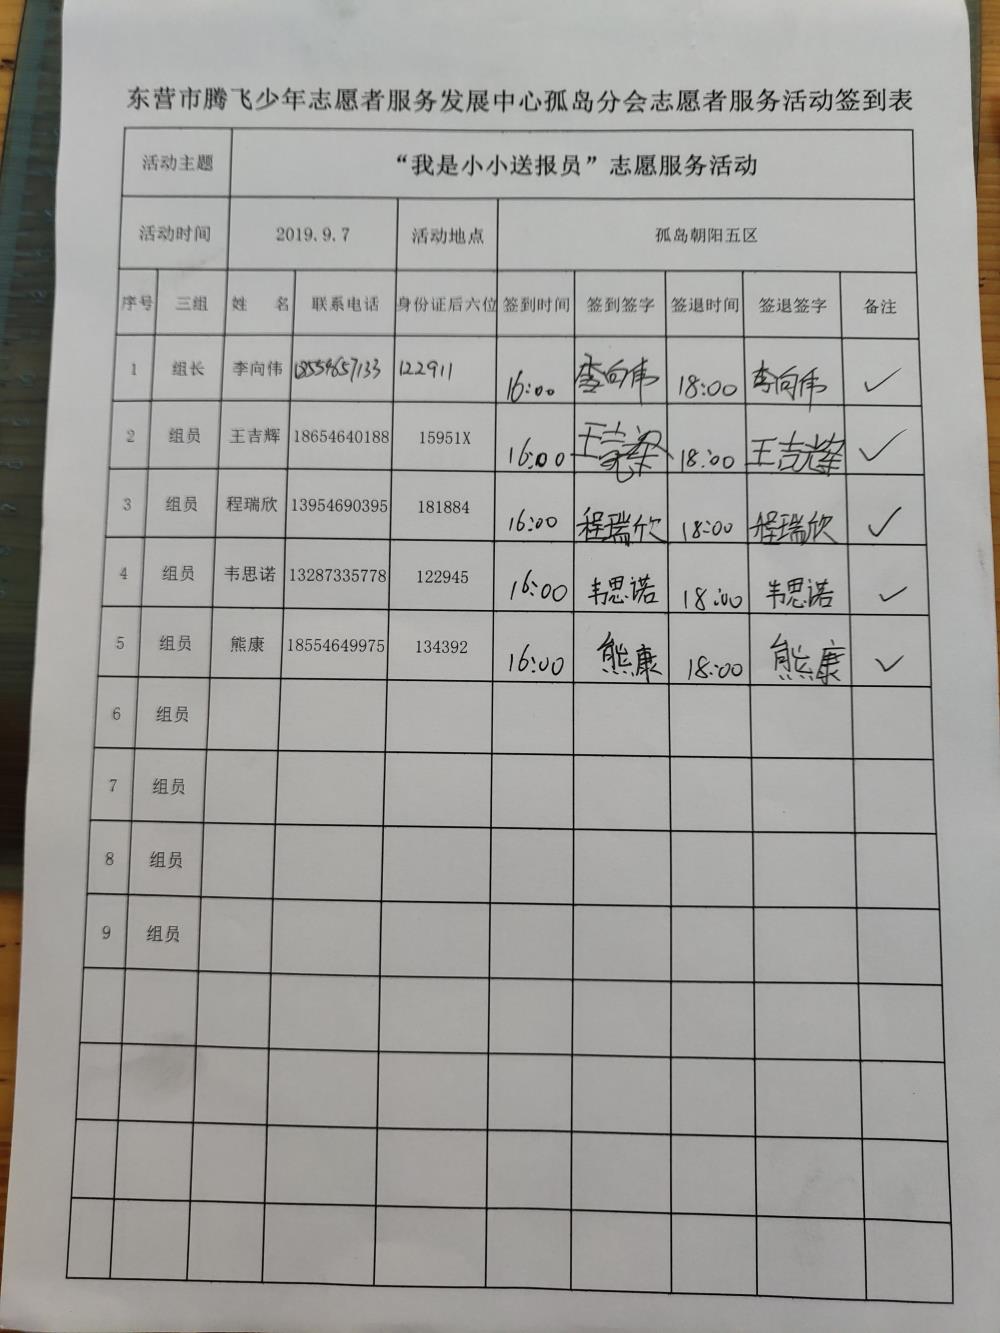 东营市腾飞少年志愿者服务发展中心孤岛分会志愿者服务活动签到表
活动主题 “我是小小送报员”志愿服务活动
活动时间 2019.9.7 活动地点 孤岛朝阳五区
序号 三组 姓 名 联系电话 身份证后六位 签到时间 签到签字 签退时间 签退签字 备注
1 组长 李向伟 18554657133 122911 16:00 李向伟 18:00 李向伟 ✓
2 组员 王吉辉 18654640188 15951X 16:00 王吉辉 18:00 王吉辉 ✓
3 组员 程瑞欣 13954690395 181884 16:00 程瑞欣 18:00 程瑞欣 ✓
4 组员 韦思诺 13287335778 122945 16:00 韦思诺 18:00 韦思诺 ✓
5 组员 熊康 18554649975 134392 16:00 熊康 18:00 熊康 ✓
6 组员
7 组员
8 组员
9 组员